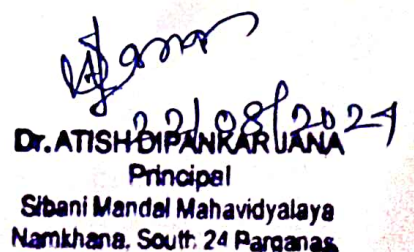 22/08/2024
Dr. ATISH DIPANKAR JANA
Principal
Sibani Mandal Mahavidyalaya
Namkhana, South 24 Parganas